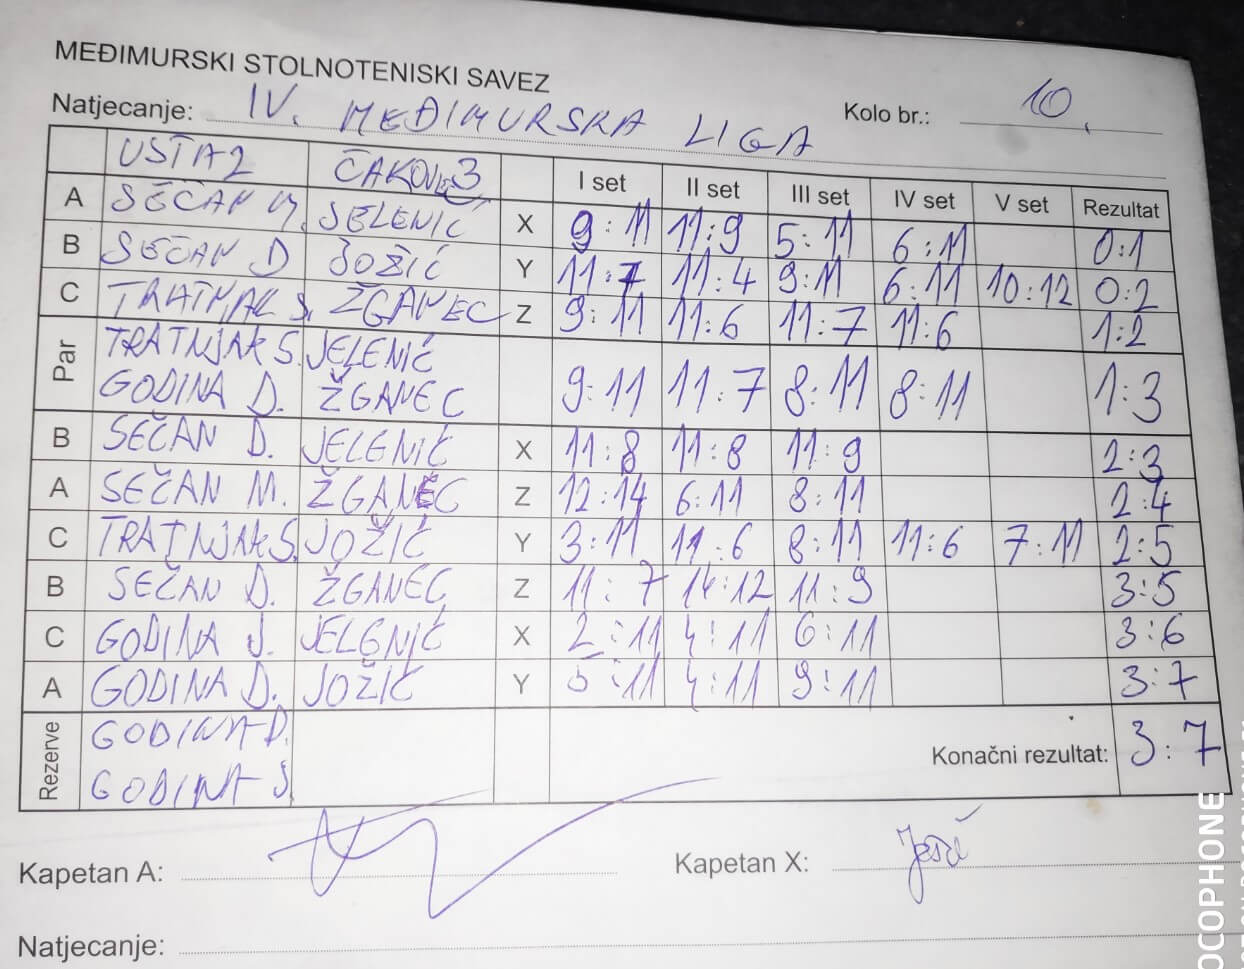 MEĐIMURSKI STOLNOTENISKI SAVEZ
Natjecanje: IV. MEĐIMURSKA LIGA Kolo br.: 10.
UŠTA 2 ČAKOVEC 3 I set II set III set IV set V set Rezultat
A SEČAN M. JELENIĆ X 9:11 11:9 5:11 6:11 0:1
B SEČAN D JOŽIĆ Y 11:7 11:4 9:11 6:11 10:12 0:2
C TRATNJAK S. ŽGANEC Z 9:11 11:6 11:7 11:6 1:2
Par TRATNJAK S. JELENIĆ
GODINA D. ŽGANEC 9:11 11:7 8:11 8:11 1:3
B SEČAN D. JELENIĆ X 11:8 11:8 11:9 2:3
A SEČAN M. ŽGANEC Z 12:14 6:11 8:11 2:4
C TRATNJAK S. JOŽIĆ Y 3:11 11:6 8:11 11:6 7:11 2:5
B SEČAN D. ŽGANEC Z 11:7 14:12 11:9 3:5
C GODINA J. JELENIĆ X 2:11 4:11 6:11 3:6
A GODINA D. JOŽIĆ Y 5:11 4:11 9:11 3:7
Rezerve GODINA D.
GODINA J. Konačni rezultat: 3:7
Kapetan A: Kapetan X:
Natjecanje:
OCOPHONE